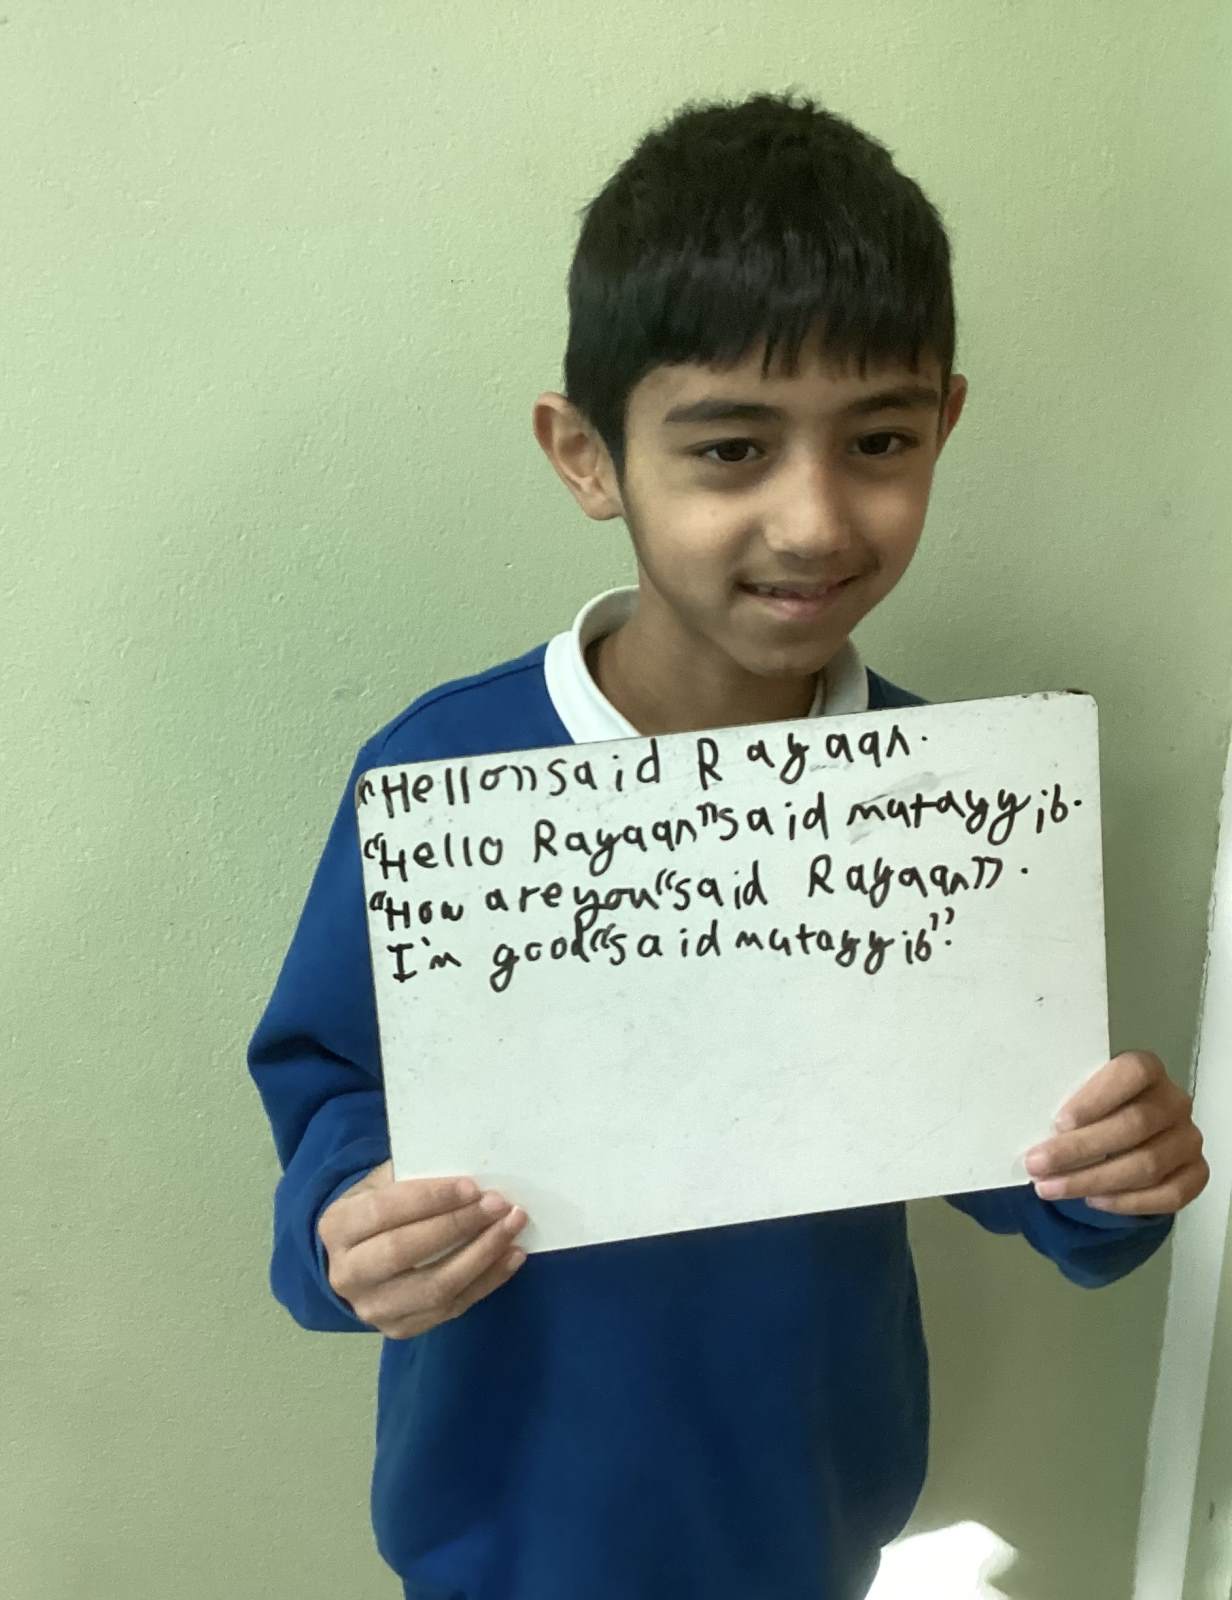 "Hello" said Rayaan.
"Hello Rayaan" said mutayyib.
"How are you" said Rayaan".
I'm good" said mutayyib".